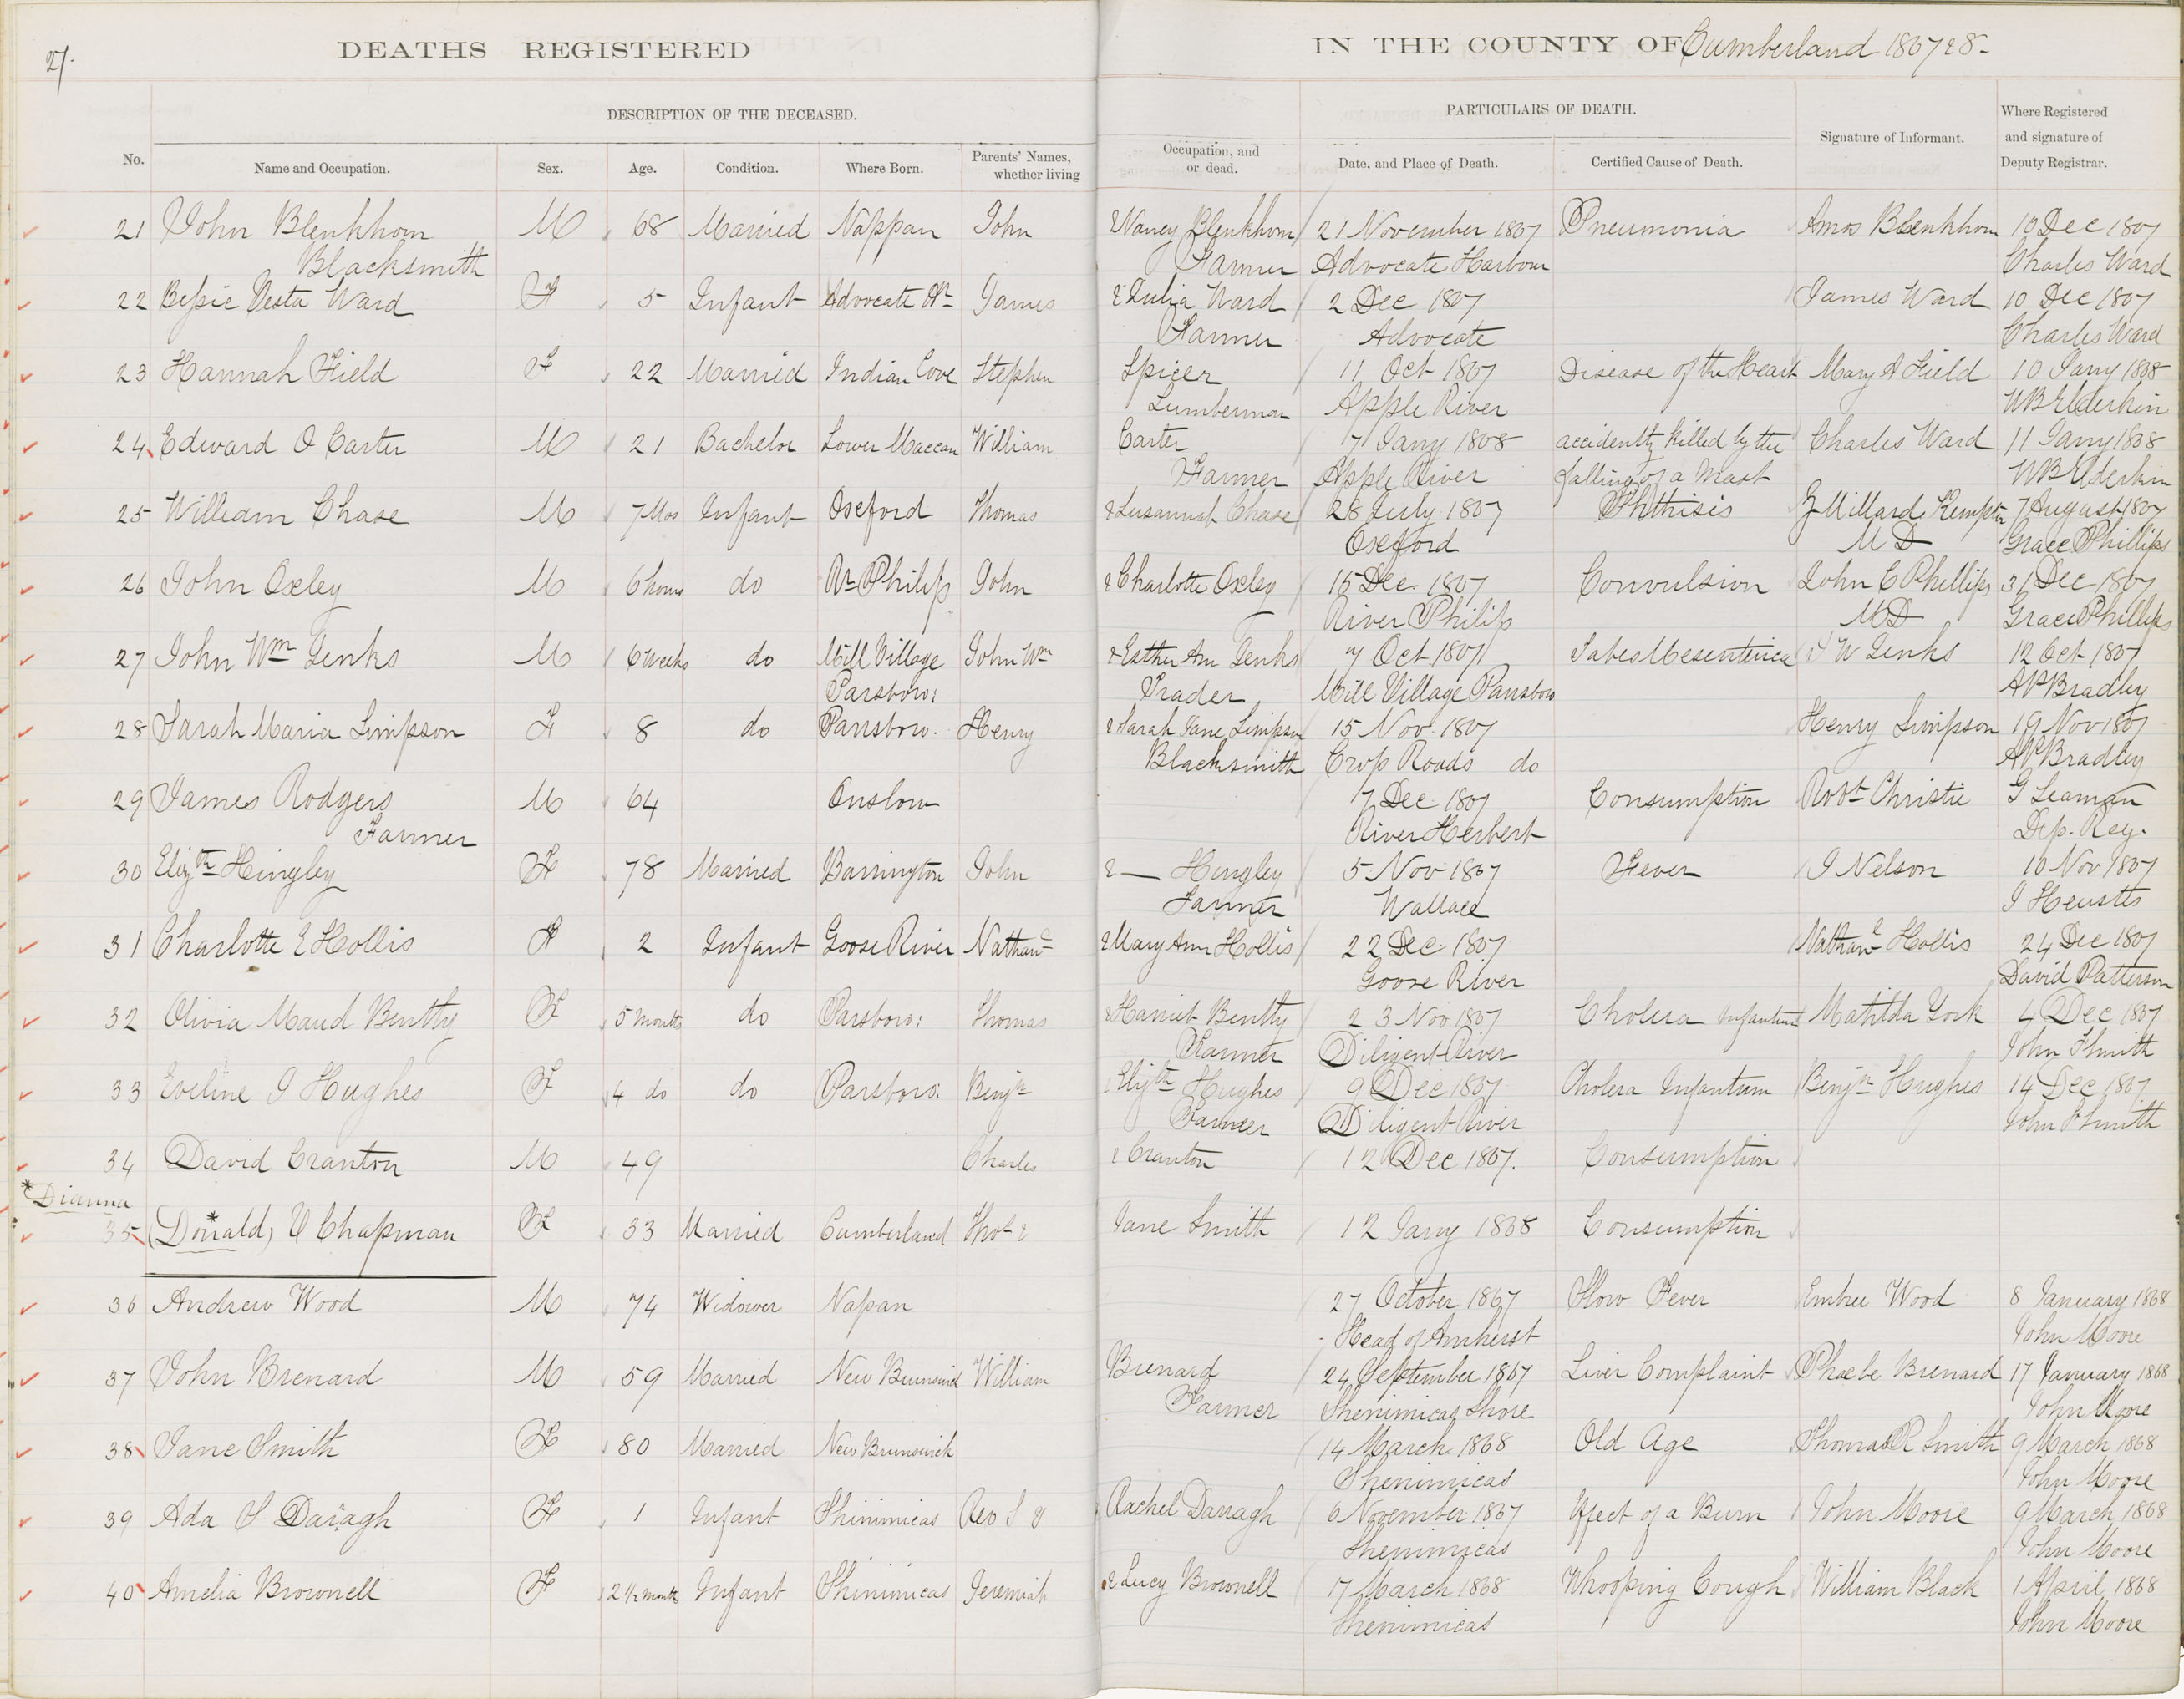 27.
DEATHS REGISTERED IN THE COUNTY OF Cumberland 1867 & 8-
DESCRIPTION OF THE DECEASED. PARTICULARS OF DEATH.
No. Name and Occupation. Sex. Age. Condition. Where Born. Parents' Names, whether living Occupation, and or dead. Date, and Place of Death. Certified Cause of Death. Signature of Informant. Where Registered and signature of Deputy Registrar.
21 John Blenkhorn M 68 Married Nappan John & Nancy Blenkhorn 21 November 1867 Pneumonia Amos Blenkhorn 10 Dec 1867
Blacksmith Farmer Advocate Harbour Charles Ward
22 Bessie Vesta Ward F 5 Infant Advocate Hr James & Julia Ward 2 Dec 1867 James Ward 10 Dec 1867
Farmer Advocate Charles Ward
23 Hannah Field F 22 Married Indian Cove Stephen Spicer 11 Oct 1867 Disease of the Heart Mary A Field 10 Jany 1868
Lumberman Apple River W B Elderkin
24 Edward O Carter M 21 Bachelor Lower Maccan William Carter 7 Jany 1868 accidently killed by the Charles Ward 11 Jany 1868
Farmer Apple River falling of a Mast W B Elderkin
25 William Chase M 7 Mos Infant Oxford Thomas & Susannah Chase 28 July 1867 Phthisis Z Millard Kempton 7 August 1867
Oxford M D Grace Phillips
26 John Oxley M 6 hours do Rr Philip John & Charlotte Oxley 15 Dec. 1867 Convulsion John C Phillips 31 Dec 1867
River Philip M D Grace Phillips
27 John Wm Jenks M 6 Weeks do Mill Village John Wm & Esther Ann Jenks 7 Oct 1867 Tabes Mesenterica J W Jenks 12 Oct 1867
Parsboro: Trader Mill Village Parrsboro A P Bradley
28 Sarah Maria Simpson F 8 do Parrsboro. Henry & Sarah Jane Simpson 15 Nov 1867 Henry Simpson 19 Nov 1867
Blacksmith Cross Roads do A P Bradley
29 James Rodgers M 64 Onslow 7 Dec 1867 Consumption Robt Christie G Seaman
Farmer River Herbert Dep. Reg.
30 Elizth Hingley F 78 Married Barrington John & — Hingley 5 Nov 1867 Fever J Nelson 10 Nov 1867
Farmer Wallace J Heustis
31 Charlotte E Hollis F 2 Infant Goose River Nathanl & Mary Ann Hollis 22 Dec 1867 Nathanl Hollis 24 Dec 1867
Goose River David Patterson
32 Olivia Maud Bentty F 5 months do Parsboro: Thomas & Harriet Bentty 23 Nov 1867 Cholera Infantum Matilda York 4 Dec 1867
Farmer Diligent River John F Smith
33 Eveline J Hughes F 4 do do Parsboro: Benjn Elizth Hughes 9 Dec 1867 Cholera Infantum Benjn Hughes 14 Dec 1867
Farmer Diligent River John F Smith
34 David Cranton M 49 Charles & Cranton 12 Dec 1867. Consumption
*Dianna
35 (Donald)* E Chapman F 33 Married Cumberland Thos & Jane Smith 12 Jany 1868 Consumption
36 Andrew Wood M 74 Widower Napan 27 October 1867 Slow Fever Embree Wood 8 January 1868
Head of Amherst John Moore
37 John Brenard M 59 Married New Brunswick William Brenard 24 September 1867 Liver Complaint Phoebe Brenard 17 January 1868
Farmer Shenimicas Shore John Moore
38 Jane Smith F 80 Married New Brunswick 14 March 1868 Old Age Thomas R Smith 9 March 1868
Shenimicas John Moore
39 Ada S Daragh F 1 Infant Shinimicas Rev S & Rachel Darragh 6 November 1867 Effect of a Burn John Moore 9 March 1868
Shenimicas John Moore
40 Amelia Brownell F 2 1/2 month Infant Shinimicas Jeremiah & Lucy Brownell 17 March 1868 Whooping Cough William Black 1 April 1868
Shenimicas John Moore